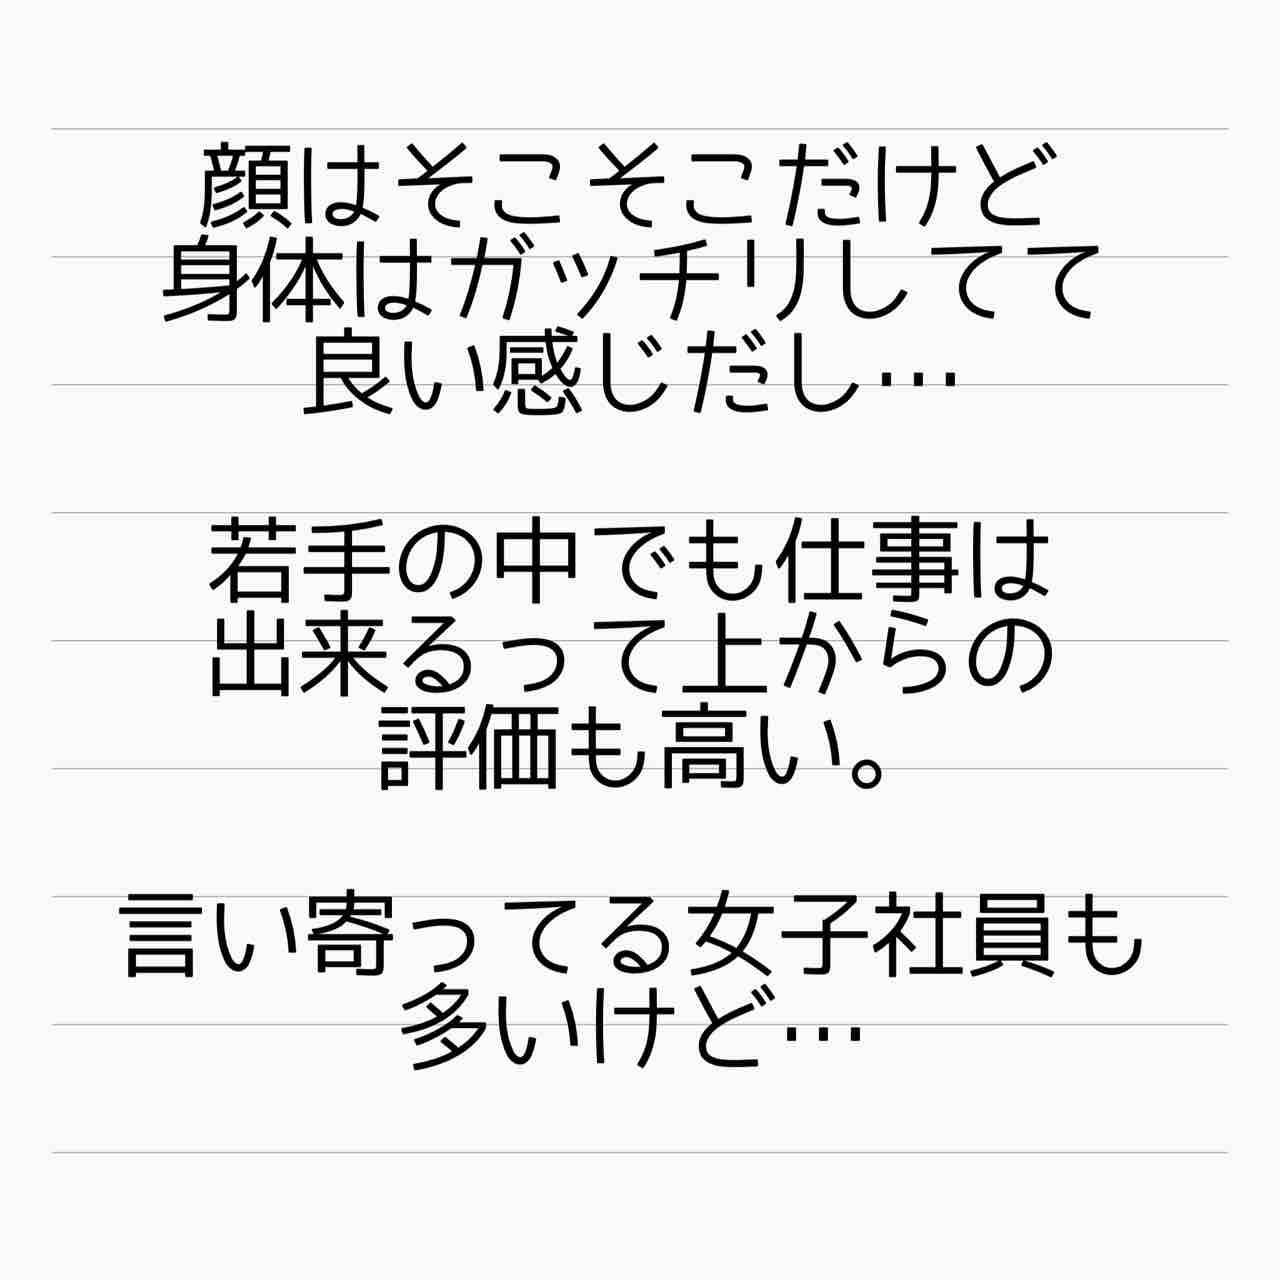 顔はそこそこだけど
身体はガッチリしてて
良い感じだし…
若手の中でも仕事は
出来るって上からの
評価も高い。
言い寄ってる女子社員も
多いけど…